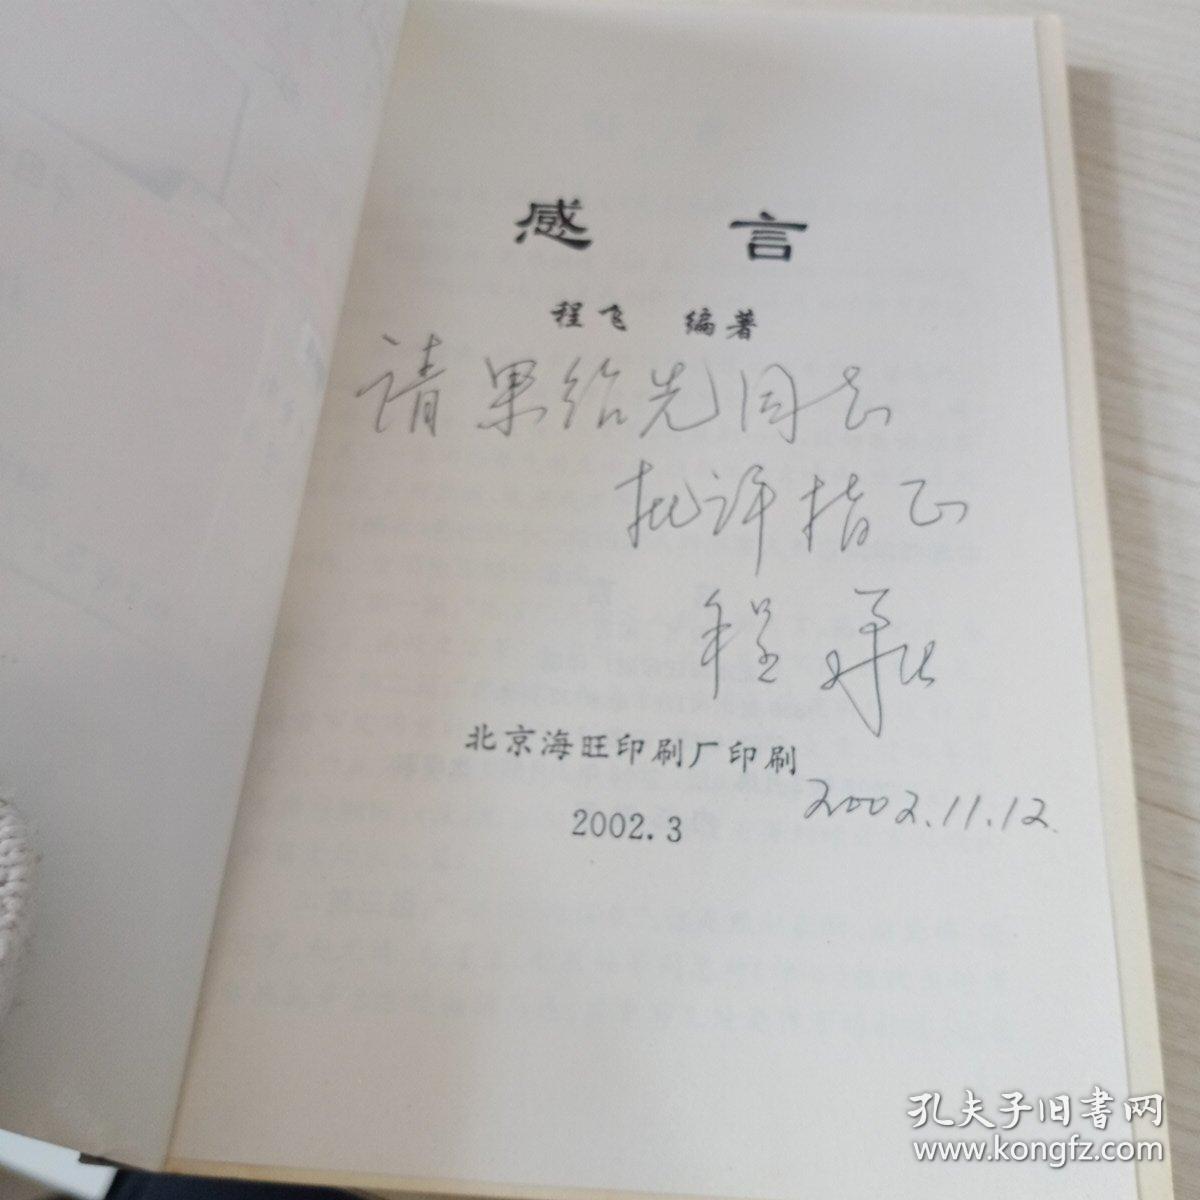 感言
程飞 编著
请果绍先同志
批评指正
程飛
北京海旺印刷厂印刷
2002.11.12
2002.3
孔夫子旧书网
www.kongfz.com